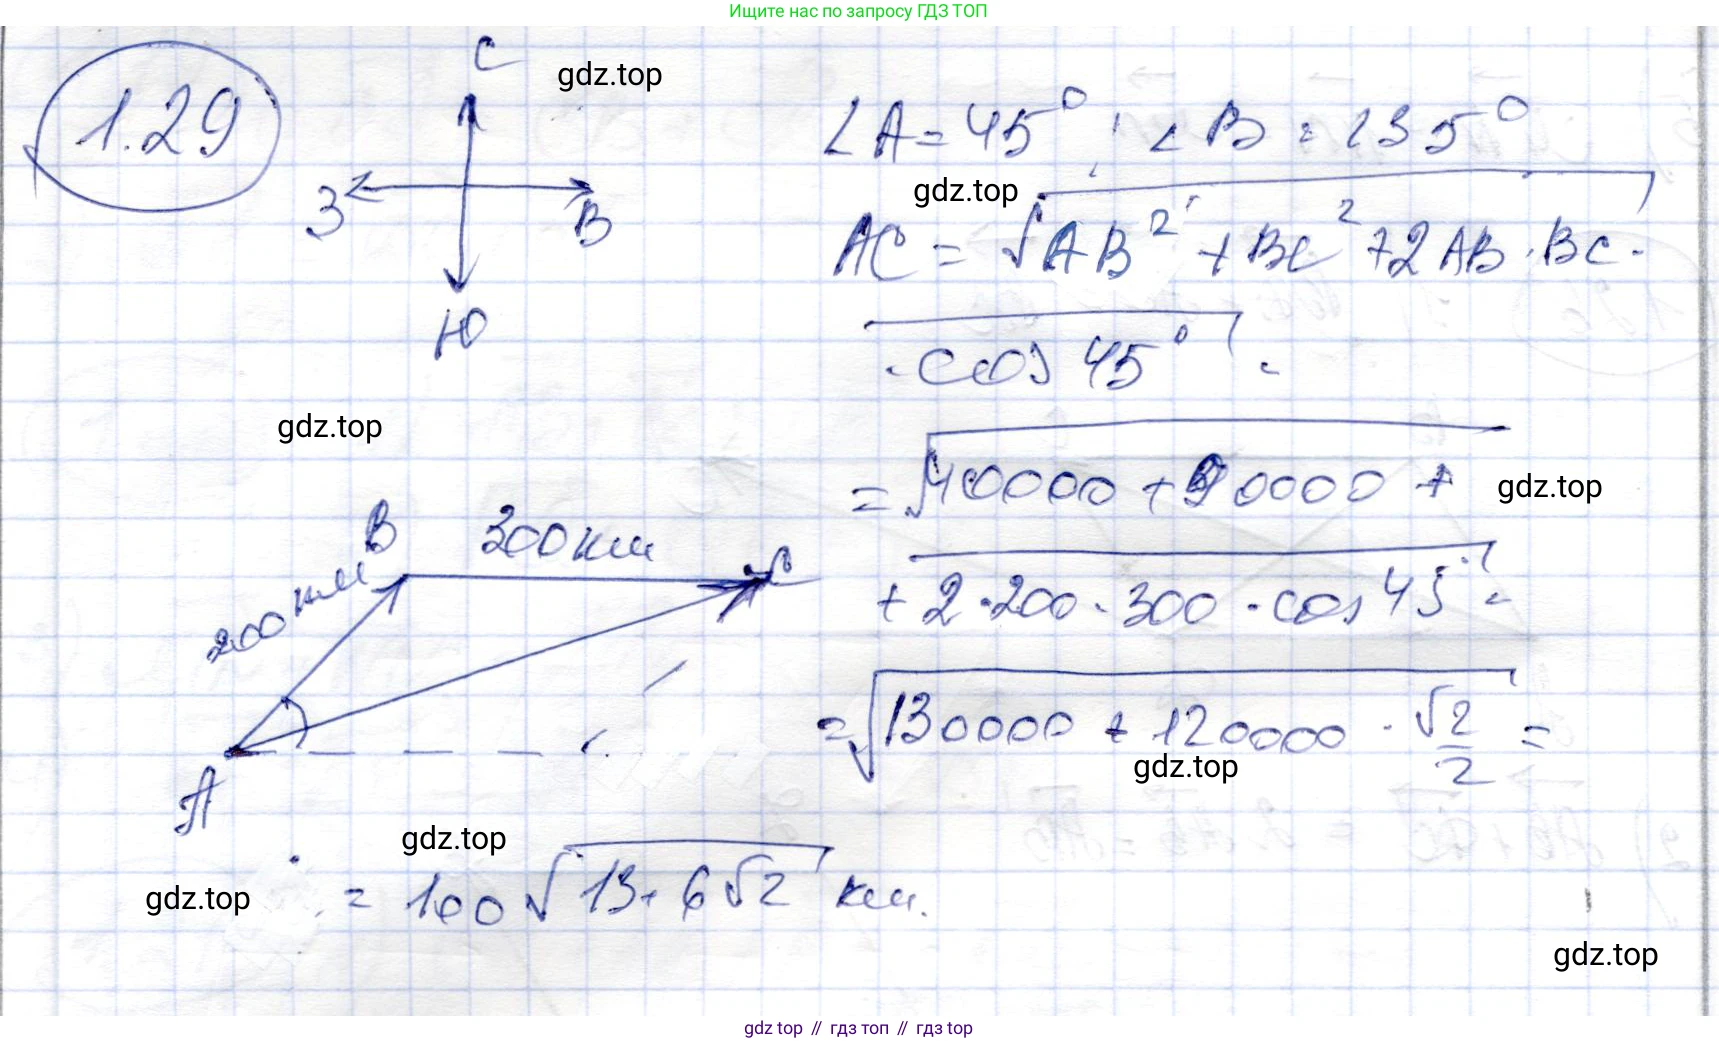 Ищите нас по запросу ГДЗ ТОП
1.29
С
gdz.top
З
В
Ю
∠A = 45° ; ∠B = 135°
gdz.top
AC = √AB² + BC² + 2AB · BC ·
· cos 45° =
gdz.top
= √40000 + 90000 +
gdz.top
+ 2 · 200 · 300 · cos 45° =
B
300 км
C
200 км
A
= √130000 + 120000 · √2/2 =
gdz.top
gdz.top
gdz.top
= 100 √13 + 6√2 км.
gdz.top
gdz top // гдз топ // гдз top